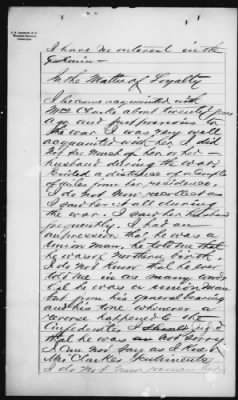 I have no interest in the
claim—
In the Matter of Loyalty
I became acquainted with
Mrs Clarke about twenty years
ago and just previous to
the war I was very well
acquainted with her. I did
not see much of her or her
husband during the war.
I lived a distance of a couple
of miles from her residence.
I do not now recollect that
I saw her at all during
the war. I saw her husband
frequently. I had an
impression that he was a
Union man, he told me that
he was of northern birth.
I do not know that he ever
told me in so many words
that he was a union man
but from his general bearing
and his tone whenever a
reverse happened to the
Confederates I should judge
that he was not sorry
I can not say as I knew
Mr. Clarkes sentiments
I do not now remember